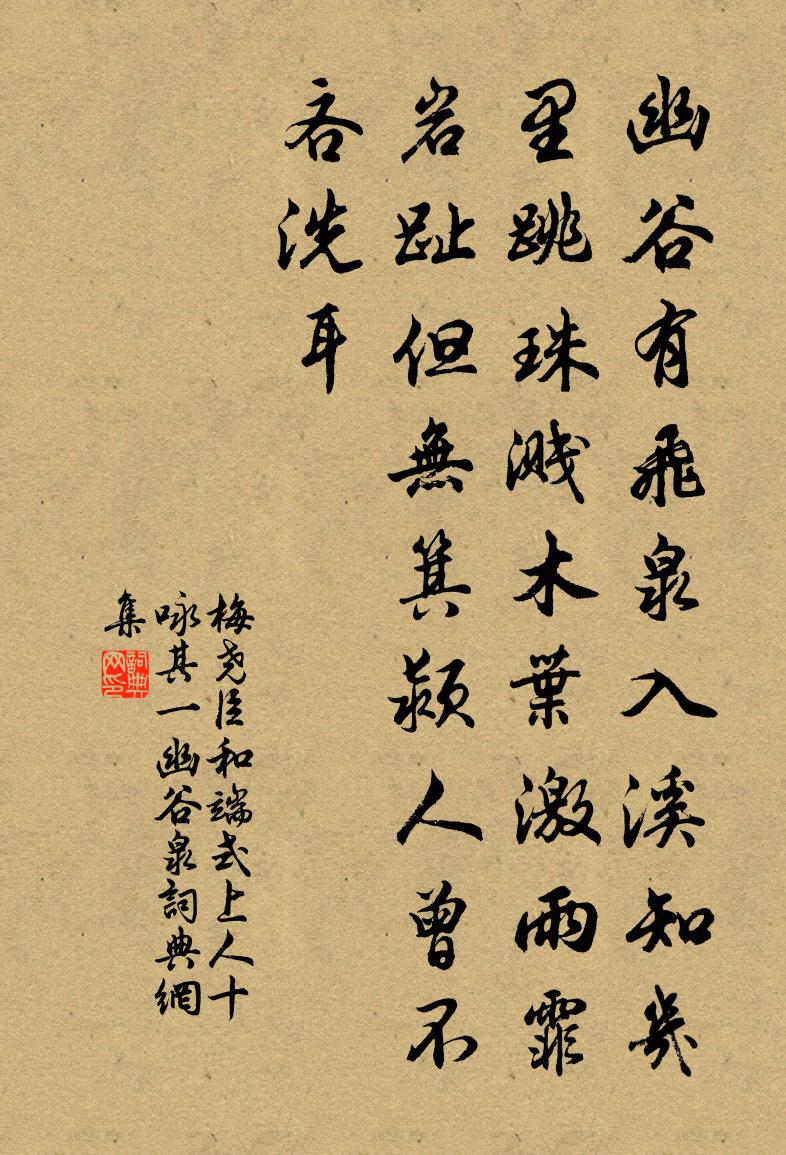 幽谷有飛泉入溪知幾
里跳珠濺木葉激雨霏
岩趾但無箕潁人曾不
吝洗耳
梅堯臣和端式上人十
咏其一幽谷泉詞典網
集
詞典
网印